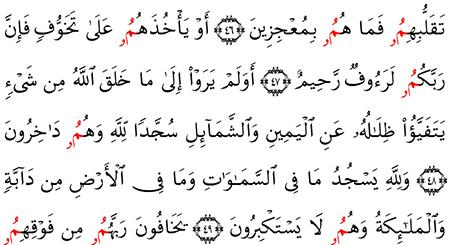 تَقَلُّبِهِمُۥ فَمَا هُمُۥ بِمُعْجِزِينَ ﴿٤٦﴾ أَوْ يَأْخُذَهُمُۥ عَلَىٰ تَخَوُّفٍ فَإِنَّ
رَبَّكُمُۥ لَرَءُوفٌ رَّحِيمٌ ﴿٤٧﴾ أَوَلَمْ يَرَوْا۟ إِلَىٰ مَا خَلَقَ ٱللَّهُ مِن شَىْءٍ
يَتَفَيَّؤُا۟ ظِلَـٰلُهُۥ عَنِ ٱلْيَمِينِ وَٱلشَّمَآئِلِ سُجَّدًا لِّلَّهِ وَهُمُۥ دَٰخِرُونَ
﴿٤٨﴾ وَلِلَّهِ يَسْجُدُ مَا فِى ٱلسَّمَـٰوَٰتِ وَمَا فِى ٱلْأَرْضِ مِن دَآبَّةٍ
وَٱلْمَلَـٰٓئِكَةُ وَهُمُۥ لَا يَسْتَكْبِرُونَ ﴿٤٩﴾ يَخَافُونَ رَبَّهُمُۥ مِن فَوْقِهِمُۥ